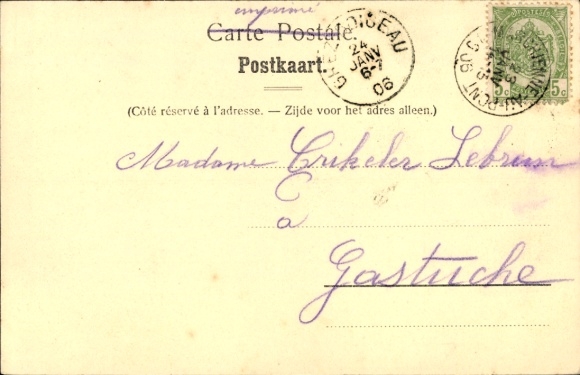 imprimé
Carte Postale.
Postkaart.
GREZ-DOICEAU
24
JANV
6-7
06
5c 5c
(Côté réservé à l'adresse. — Zijde voor het adres alleen.)
Madame Crikeler Lebrun
à
Gastuche